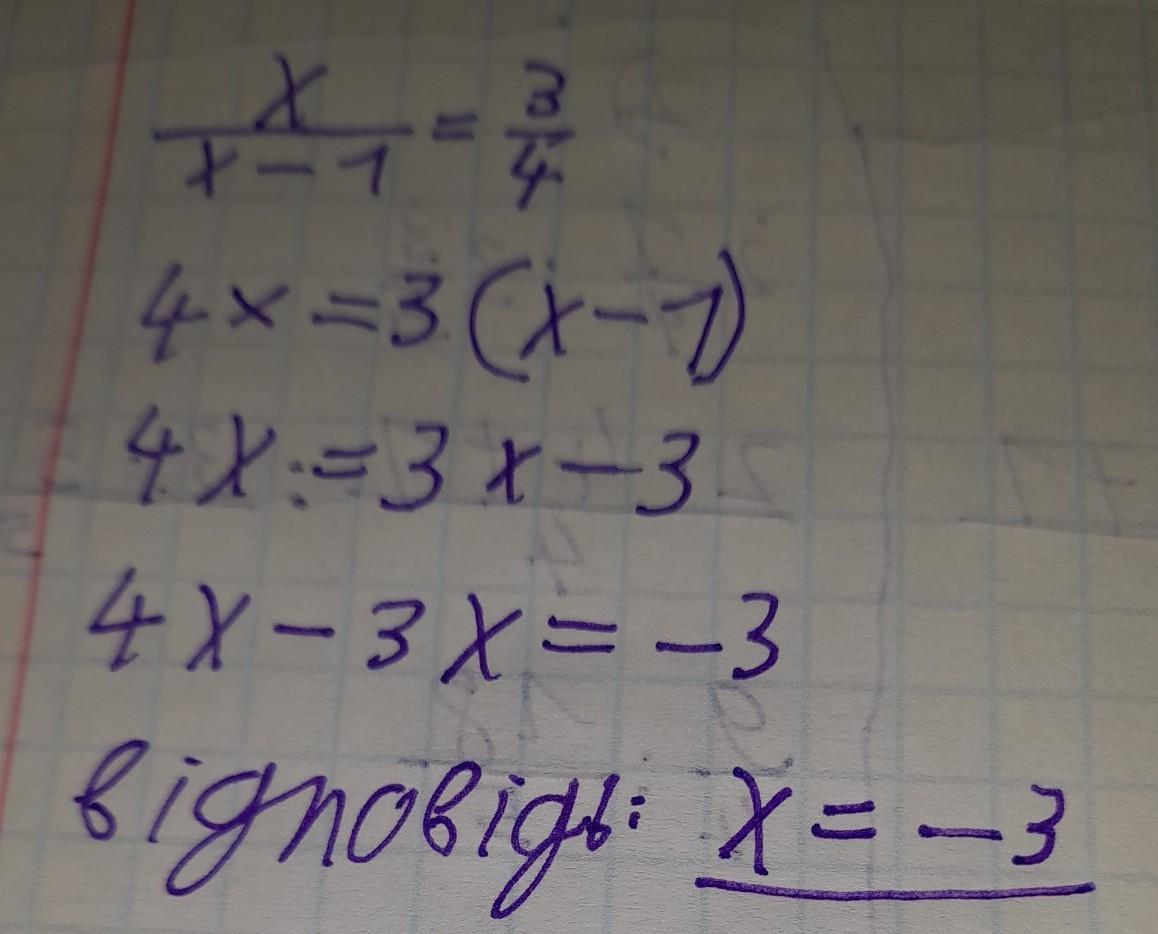 x/(x-1) = 3/4
4x = 3(x-1)
4x := 3x-3
4x-3x = -3
відповідь: x = -3